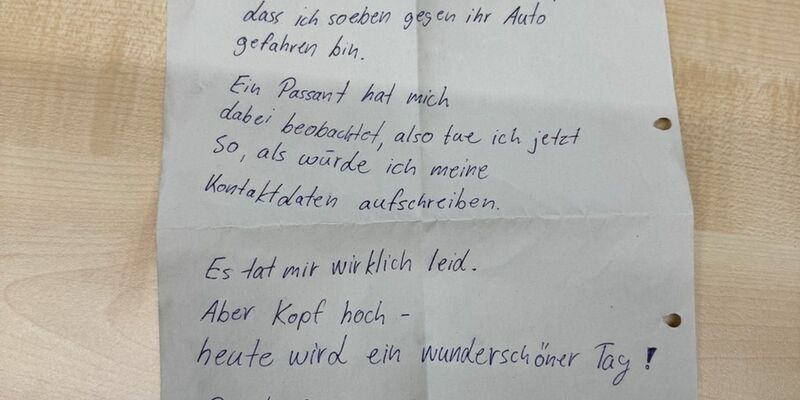 dass ich soeben gegen ihr Auto
gefahren bin.
Ein Passant hat mich
dabei beobachtet, also tue ich jetzt
So, als würde ich meine
Kontaktdaten aufschreiben.
Es tat mir wirklich leid.
Aber Kopf hoch -
heute wird ein wunderschöner Tag!